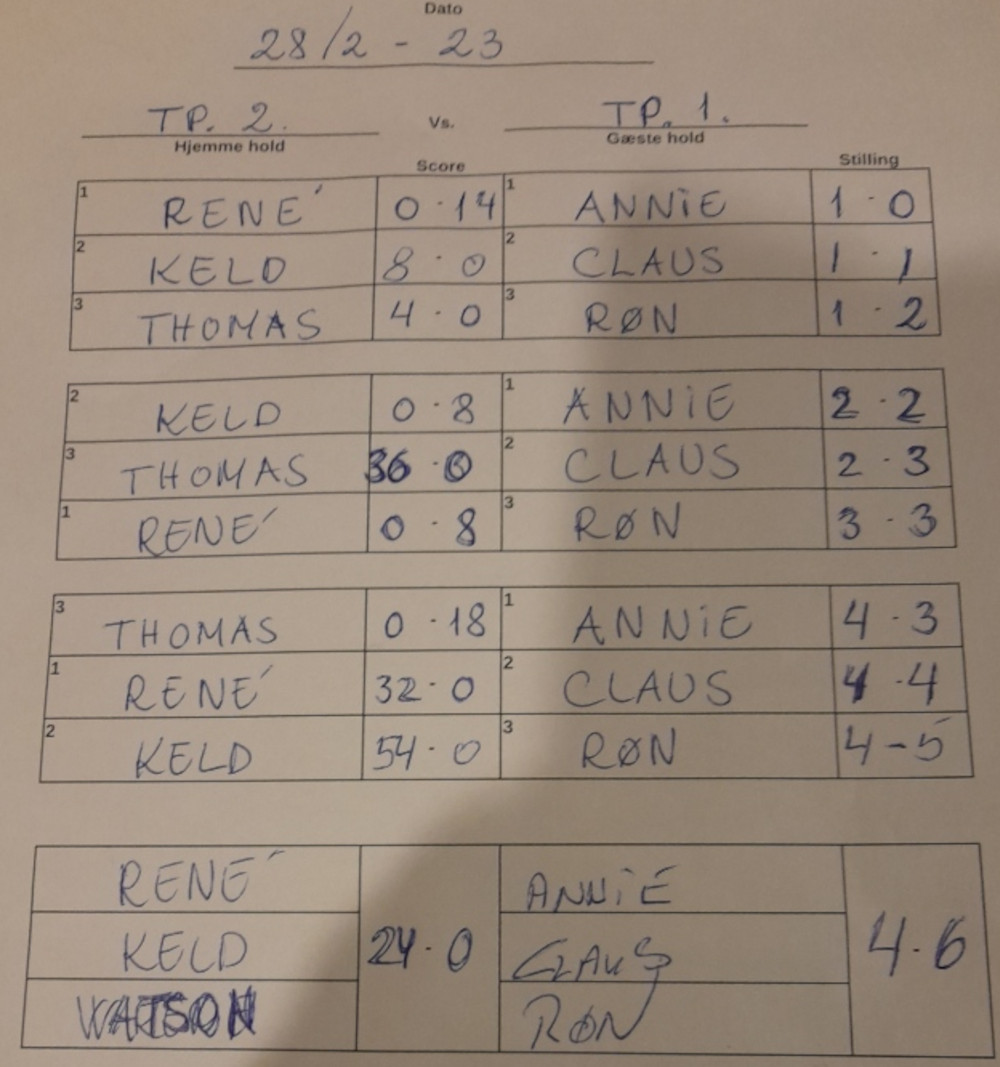 Dato
28/2 - 23
TP. 2. Vs. TP. 1.
Hjemme hold Gæste hold
Score Stilling
1 RENÉ 0 · 14 1 ANNiE 1 · 0
2 KELD 8 · 0 2 CLAUS 1 · 1
3 THOMAS 4 · 0 3 RØN 1 · 2
2 KELD 0 · 8 1 ANNiE 2 · 2
3 THOMAS 36 · 0 2 CLAUS 2 · 3
1 RENÉ 0 · 8 3 RØN 3 · 3
3 THOMAS 0 · 18 1 ANNiE 4 · 3
1 RENÉ 32 · 0 2 CLAUS 4 · 4
2 KELD 54 · 0 3 RØN 4 - 5
RENÉ ANNiE
KELD 24 · 0 CLAUS 4 · 6
WATSON RØN